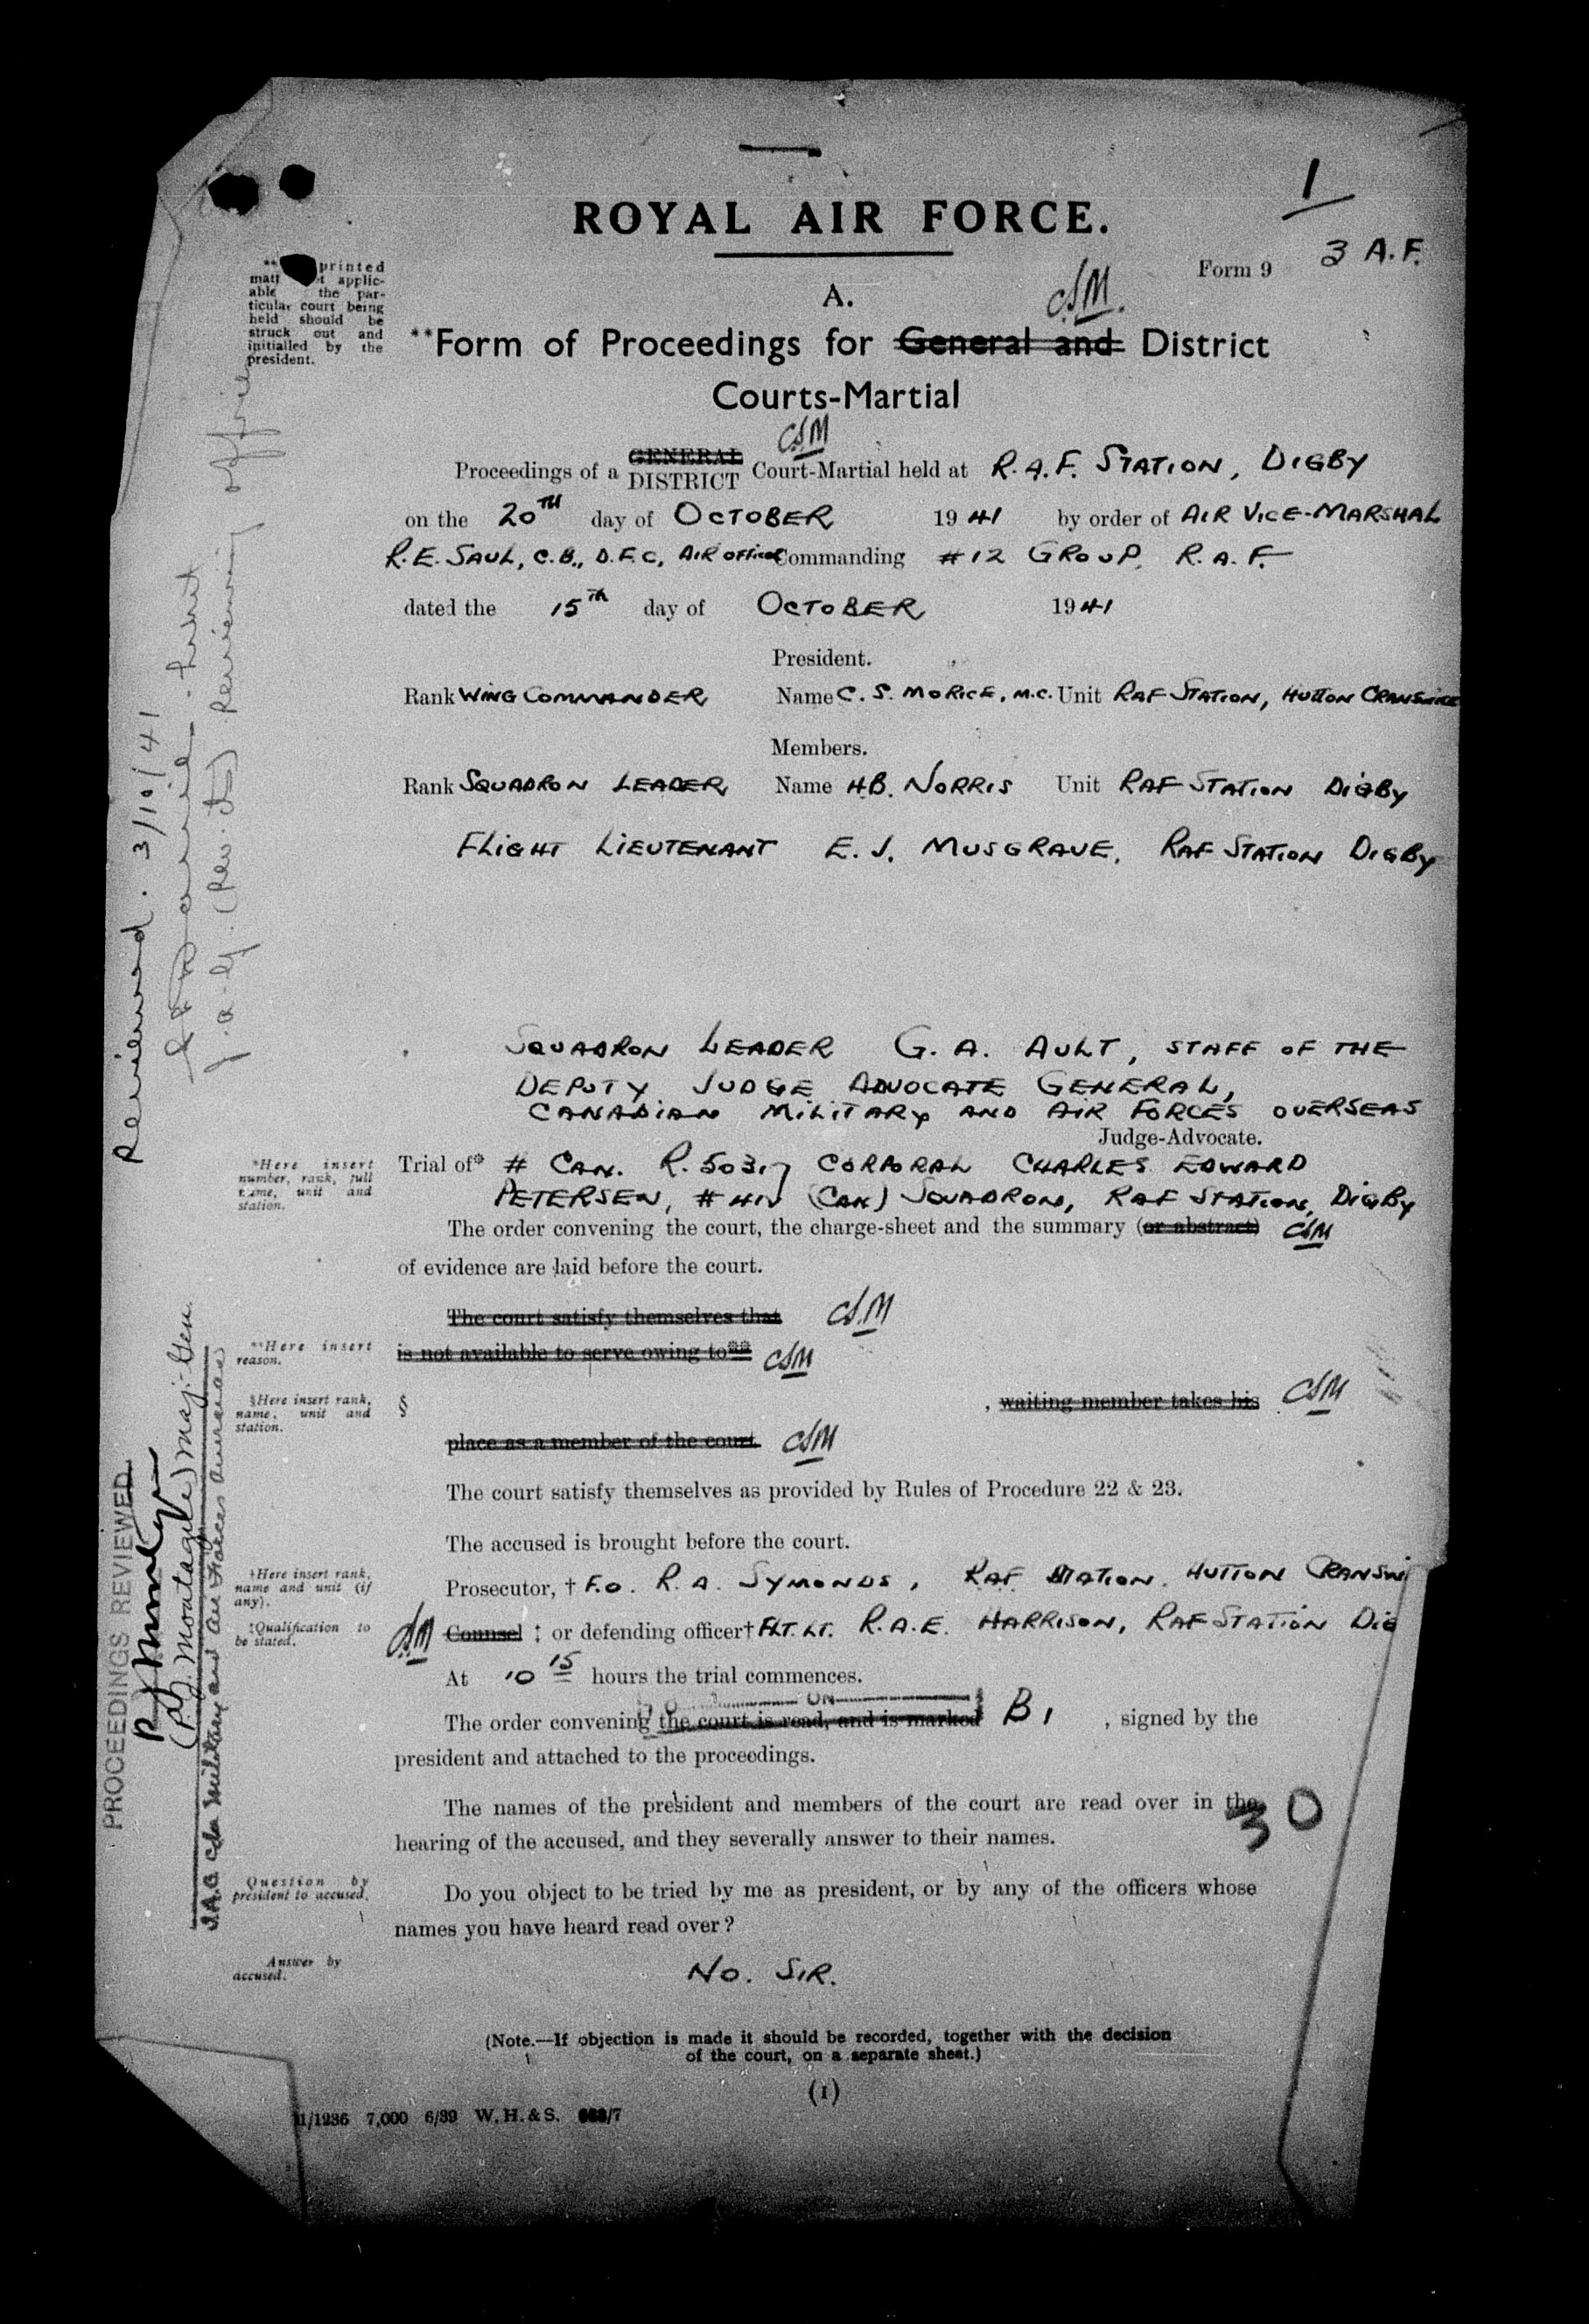 1
ROYAL AIR FORCE.
Form 9 3 A.F.
A.
CSM
**Form of Proceedings for General and District
Courts-Martial
** printed
applic-
able the par-
ticular court being
held should be
struck out and
initialled by the
president.
CSM
Proceedings of a GENERAL DISTRICT Court-Martial held at R.A.F. STATION, DIGBY
on the 20TH day of OCTOBER 1941 by order of AIR VICE-MARSHAL
R.E. SAUL, C.B., D.F.C, AIR officer Commanding #12 GROUP. R.A.F.
dated the 15th day of OCTOBER 1941
President.
Rank WING COMMANDER Name C. S. MORICE, M.C. Unit RAF STATION, HUTTON CRANSWICK
Members.
Rank SQUADRON LEADER Name H.B. NORRIS Unit RAF STATION DIGBY
FLIGHT LIEUTENANT E. J. MUSGRAVE, RAF STATION DIGBY
SQUADRON LEADER G. A. AULT, STAFF OF THE
DEPUTY JUDGE ADVOCATE GENERAL,
CANADIAN MILITARY AND AIR FORCES OVERSEAS
Judge-Advocate.
*Here insert
number, rank, full
name, unit and
station.
Trial of* # CAN. R. 5031 CORPORAL CHARLES EDWARD
PETERSEN, # 411 (CAN) SQUADRON, RAF STATION, DIGBY
The order convening the court, the charge-sheet and the summary (or abstract) CSM
of evidence are laid before the court.
The court satisfy themselves that CSM
**Here insert
reason.
is not available to serve owing to** CSM
§Here insert rank,
name, unit and
station.
§ , waiting member takes his CSM
place as a member of the court. CSM
The court satisfy themselves as provided by Rules of Procedure 22 & 23.
The accused is brought before the court.
†Here insert rank,
name and unit (if
any).
Prosecutor, † F.O. R. A. SYMONDS, RAF STATION. HUTTON CRANSWI
‡Qualification to
be stated.
CSM Counsel ‡ or defending officer† FLT. LT. R.A.E. HARRISON, RAF STATION DIG
At 10 15 hours the trial commences.
The order convening the court is read, and is marked B1 , signed by the
president and attached to the proceedings.
The names of the president and members of the court are read over in the
hearing of the accused, and they severally answer to their names.
30
Question by
president to accused.
Do you object to be tried by me as president, or by any of the officers whose
names you have heard read over?
Answer by
accused.
NO. SIR.
(Note.—If objection is made it should be recorded, together with the decision
of the court, on a separate sheet.)
(1)
1/1236 7,000 6/39 W.H.&S.
Reviewed. 3/10/41
Reviewing officer
PROCEEDINGS REVIEWED
(P.J. Montague) Maj-Gen.
J.A.G Cdn Military and Air Forces Overseas